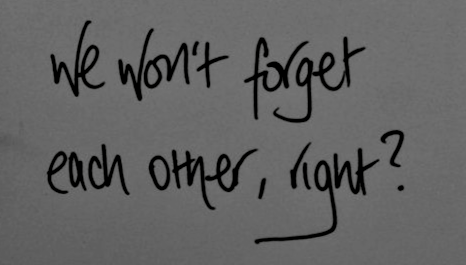 We won't forget
each other, right?